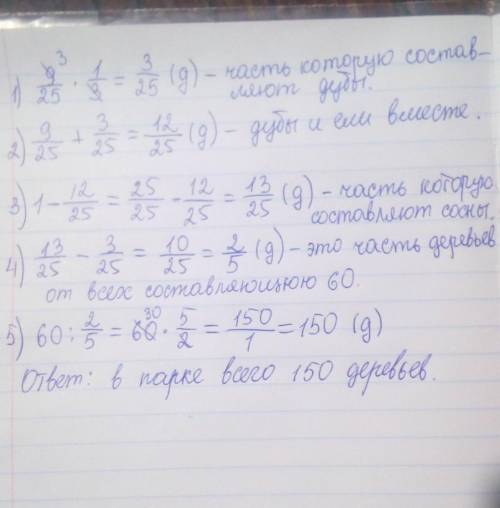 1) 9/25 · 1/3 = 3/25 (д) – часть которую состав-
ляют дубы.
2) 9/25 + 3/25 = 12/25 (д) – дубы и ели вместе.
3) 1 – 12/25 = 25/25 – 12/25 = 13/25 (д) – часть которую
составляют сосны.
4) 13/25 – 3/25 = 10/25 = 2/5 (д) – это часть деревьев
от всех составляющюю 60.
5) 60 : 2/5 = 60 30 · 5/2 = 150/1 = 150 (д)
Ответ: в парке всего 150 деревьев.